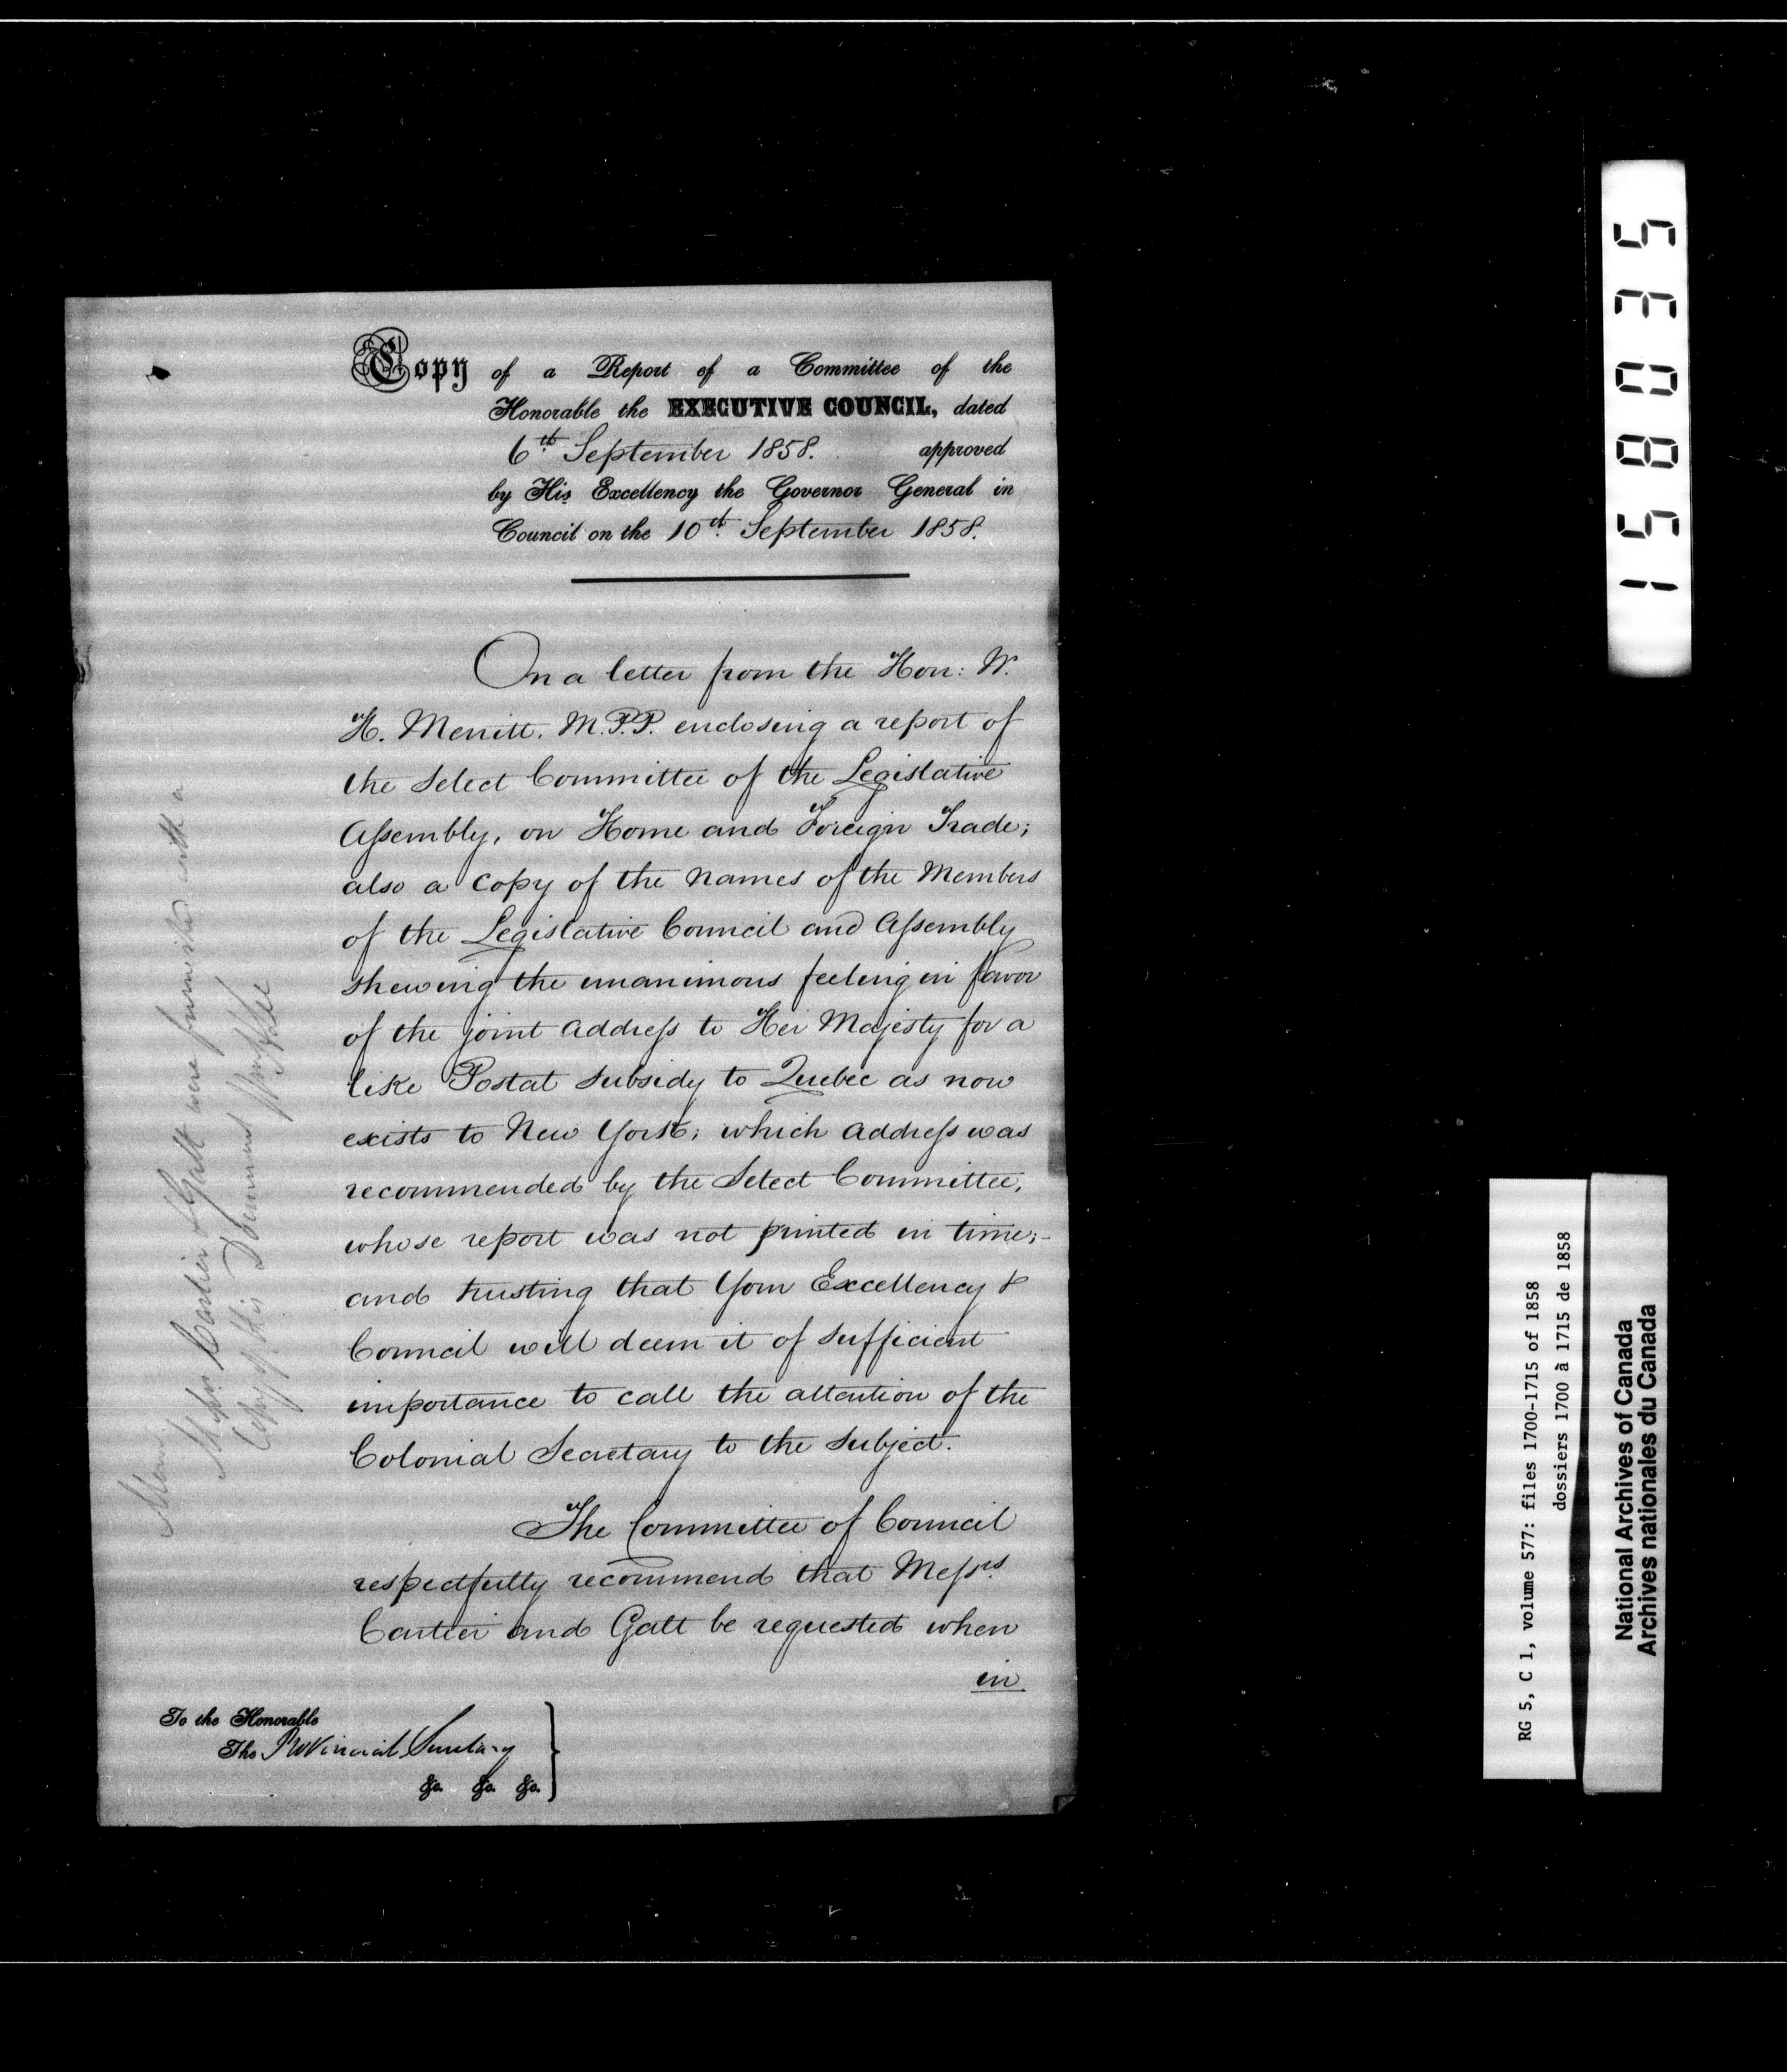 Copy of a Report of a Committee of the
Honorable the EXECUTIVE COUNCIL, dated
6th September 1858. approved
by His Excellency the Governor General in
Council on the 10th September 1858.
On a letter from the Hon: W.
H. Merritt. M.P.P. enclosing a report of
the Select Committee of the Legislative
Assembly, on Home and Foreign Trade;
also a Copy of the names of the Members
of the Legislative Council and Assembly
shewing the unanimous feeling in favor
of the joint address to Her Majesty for a
like Postal subsidy to Quebec as now
exists to New York; which address was
recommended by the Select Committee,
whose report was not printed in time;-
and trusting that Your Excellency &
Council will deem it of sufficient
importance to call the attention of the
Colonial Secretary to the subject.
The Committee of Council
respectfully recommend that Messrs.
Cartier and Galt be requested when
in
To the Honorable
The Provincial Secretary
&c. &c. &c.
Mem.
Messrs. Cartier & Galt were furnished with a
Copy of this Document
158035
RG 5, C 1, volume 577: files 1700-1715 of 1858
dossiers 1700 à 1715 de 1858
National Archives of Canada
Archives nationales du Canada